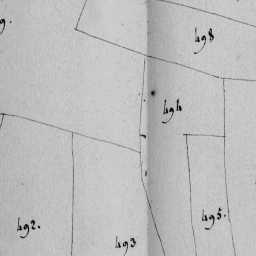 498
494
495.
492.
493